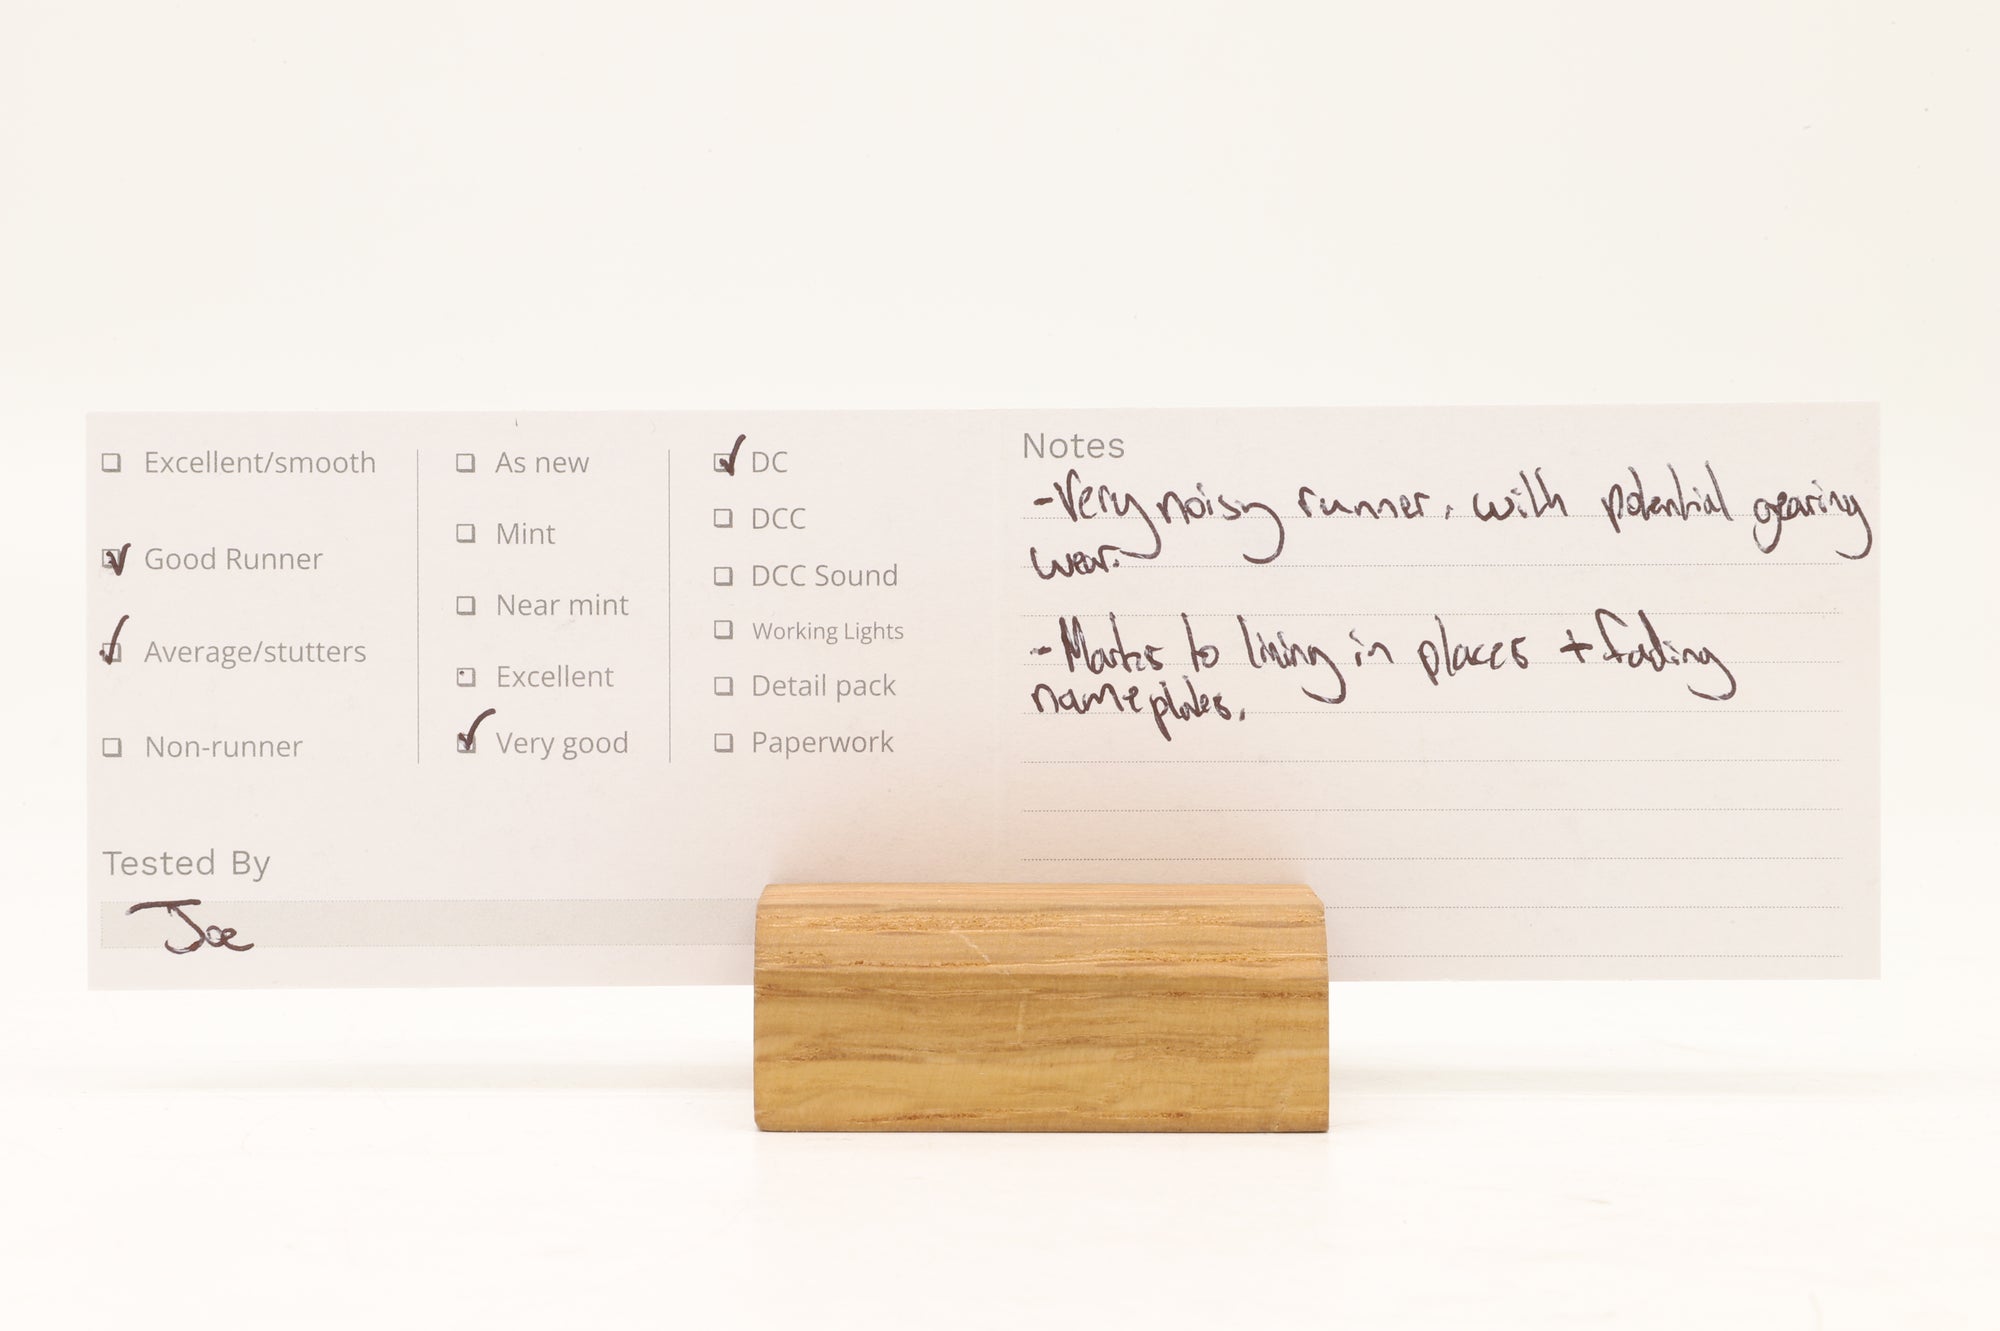 Excellent/smooth
Good Runner
Average/stutters
Non-runner
As new
Mint
Near mint
Excellent
Very good
DC
DCC
DCC Sound
Working Lights
Detail pack
Paperwork
Tested By
Joe
Notes
-Very noisy runner, with potential gearing
wear.
-Marks to lining in places + fading
nameplates.